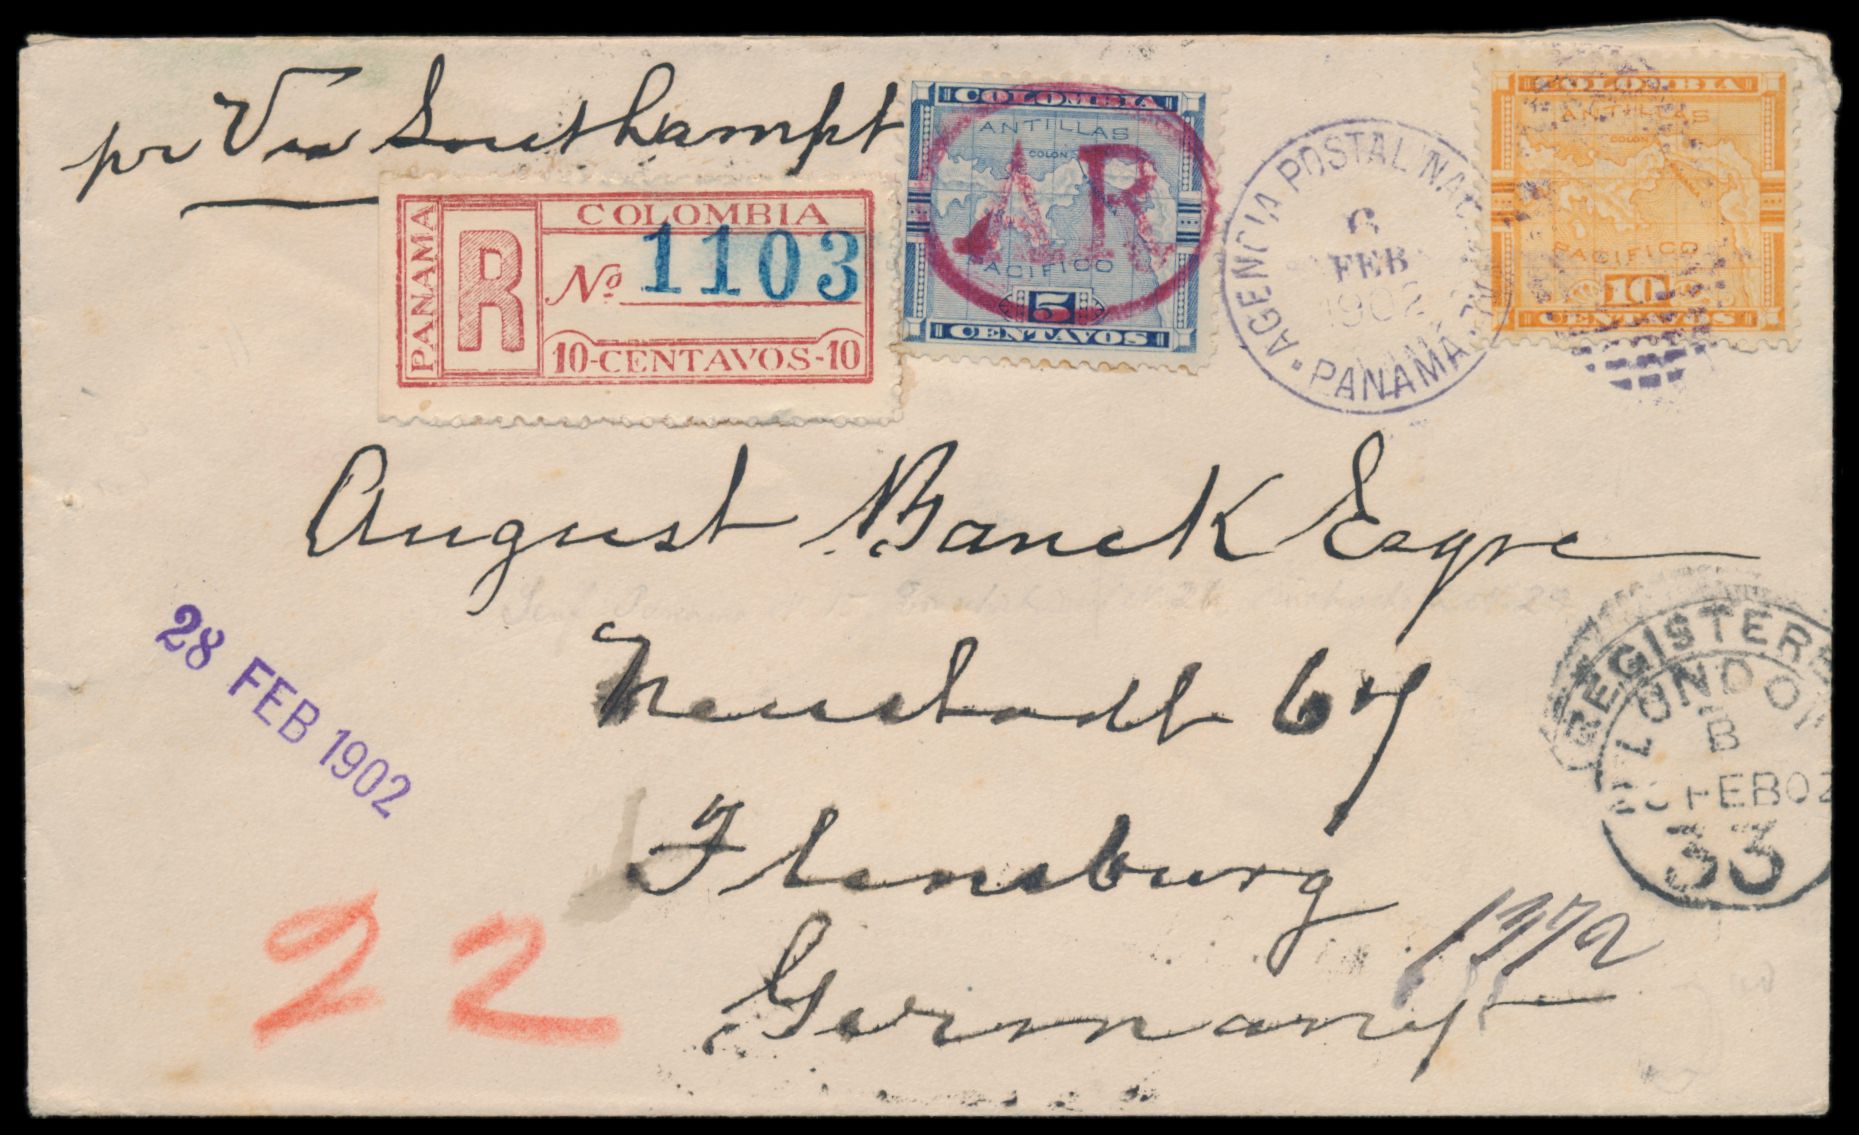 pr Via Southampt
COLOMBIA
PANAMA
R
No 1103
10-CENTAVOS-10
COLOMBIA
ANTILLAS
COLON
PACIFICO
5
CENTAVOS
AR
AGENCIA POSTAL NAC
6
FEB
1902
PANAMÁ
COLOMBIA
ANTILLAS
COLON
PACIFICO
10
CENTAVOS
August Banck Esqre
28 FEB 1902
Neustadt 67
Flensburg
Germany
REGISTERE
LONDON
B
FEB 02
33
1372
22